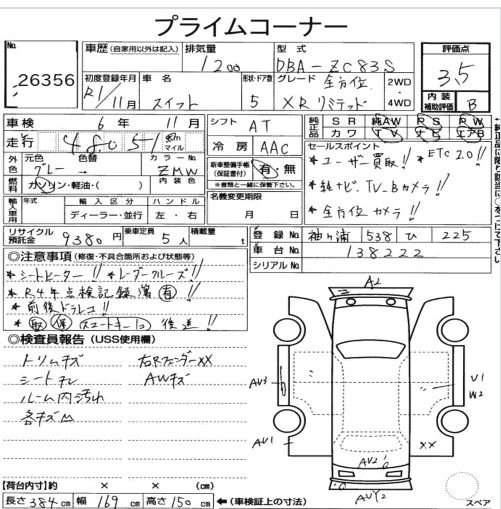 プライムコーナー
No. 26356
車歴 (自家用以外は記入)
排気量 1200
型式 DBA-ZC83S
評価点 3.5
初度登録年月 R1/11月
車名 スイフト
形状・ドア数 5
グレード 全方位 XRリミテッド
2WD・4WD
内装補助評価 B
車検 6年 11月
シフト AT
純正品 SR 純AW PS PW
カワ TV ナビ エアB
走行 48051 km マイル
冷房 AAC
セールスポイント
*ユーザー買取!! *ETC2.0!!
*純ナビ、TV_Bカメラ!!
*全方位カメラ!!
外色 元色 グレー 色替 → カラーNo. ZMW
燃料 ガソリン・軽油・( ) 内装色
新車整備手帳(保証書付) 有・無
※書類と一緒に保管下さい。
名義変更期限 月 日
輸入車用 年式 輸入区分 ディーラー・並行 ハンドル 左・右
リサイクル預託金 9380円
乗車定員 5人
積載量 t
登録No. 袖ヶ浦 538 ひ 225
車台No. 138222
シリアルNo.
◎注意事項 (修復・不具合箇所および状態等)
*シートヒーター!! *レーダークルーズ!!
*R4年点検記録簿 有!!
*前後ドラレコ!!
*取 保 スマートキー1コ 後送!!
◎検査員報告 (USS使用欄)
トリムキズ 右RフェンダーXX
シートコゲ AWキズ
ルーム内汚れ
各キズ凹
A2
AV3
U1
W2
AV1
XX
AV2
AVY2
スペア
【荷台内寸】約 × × (cm)
長さ 384cm 幅 169cm 高さ 150cm ←(車検証上の寸法)